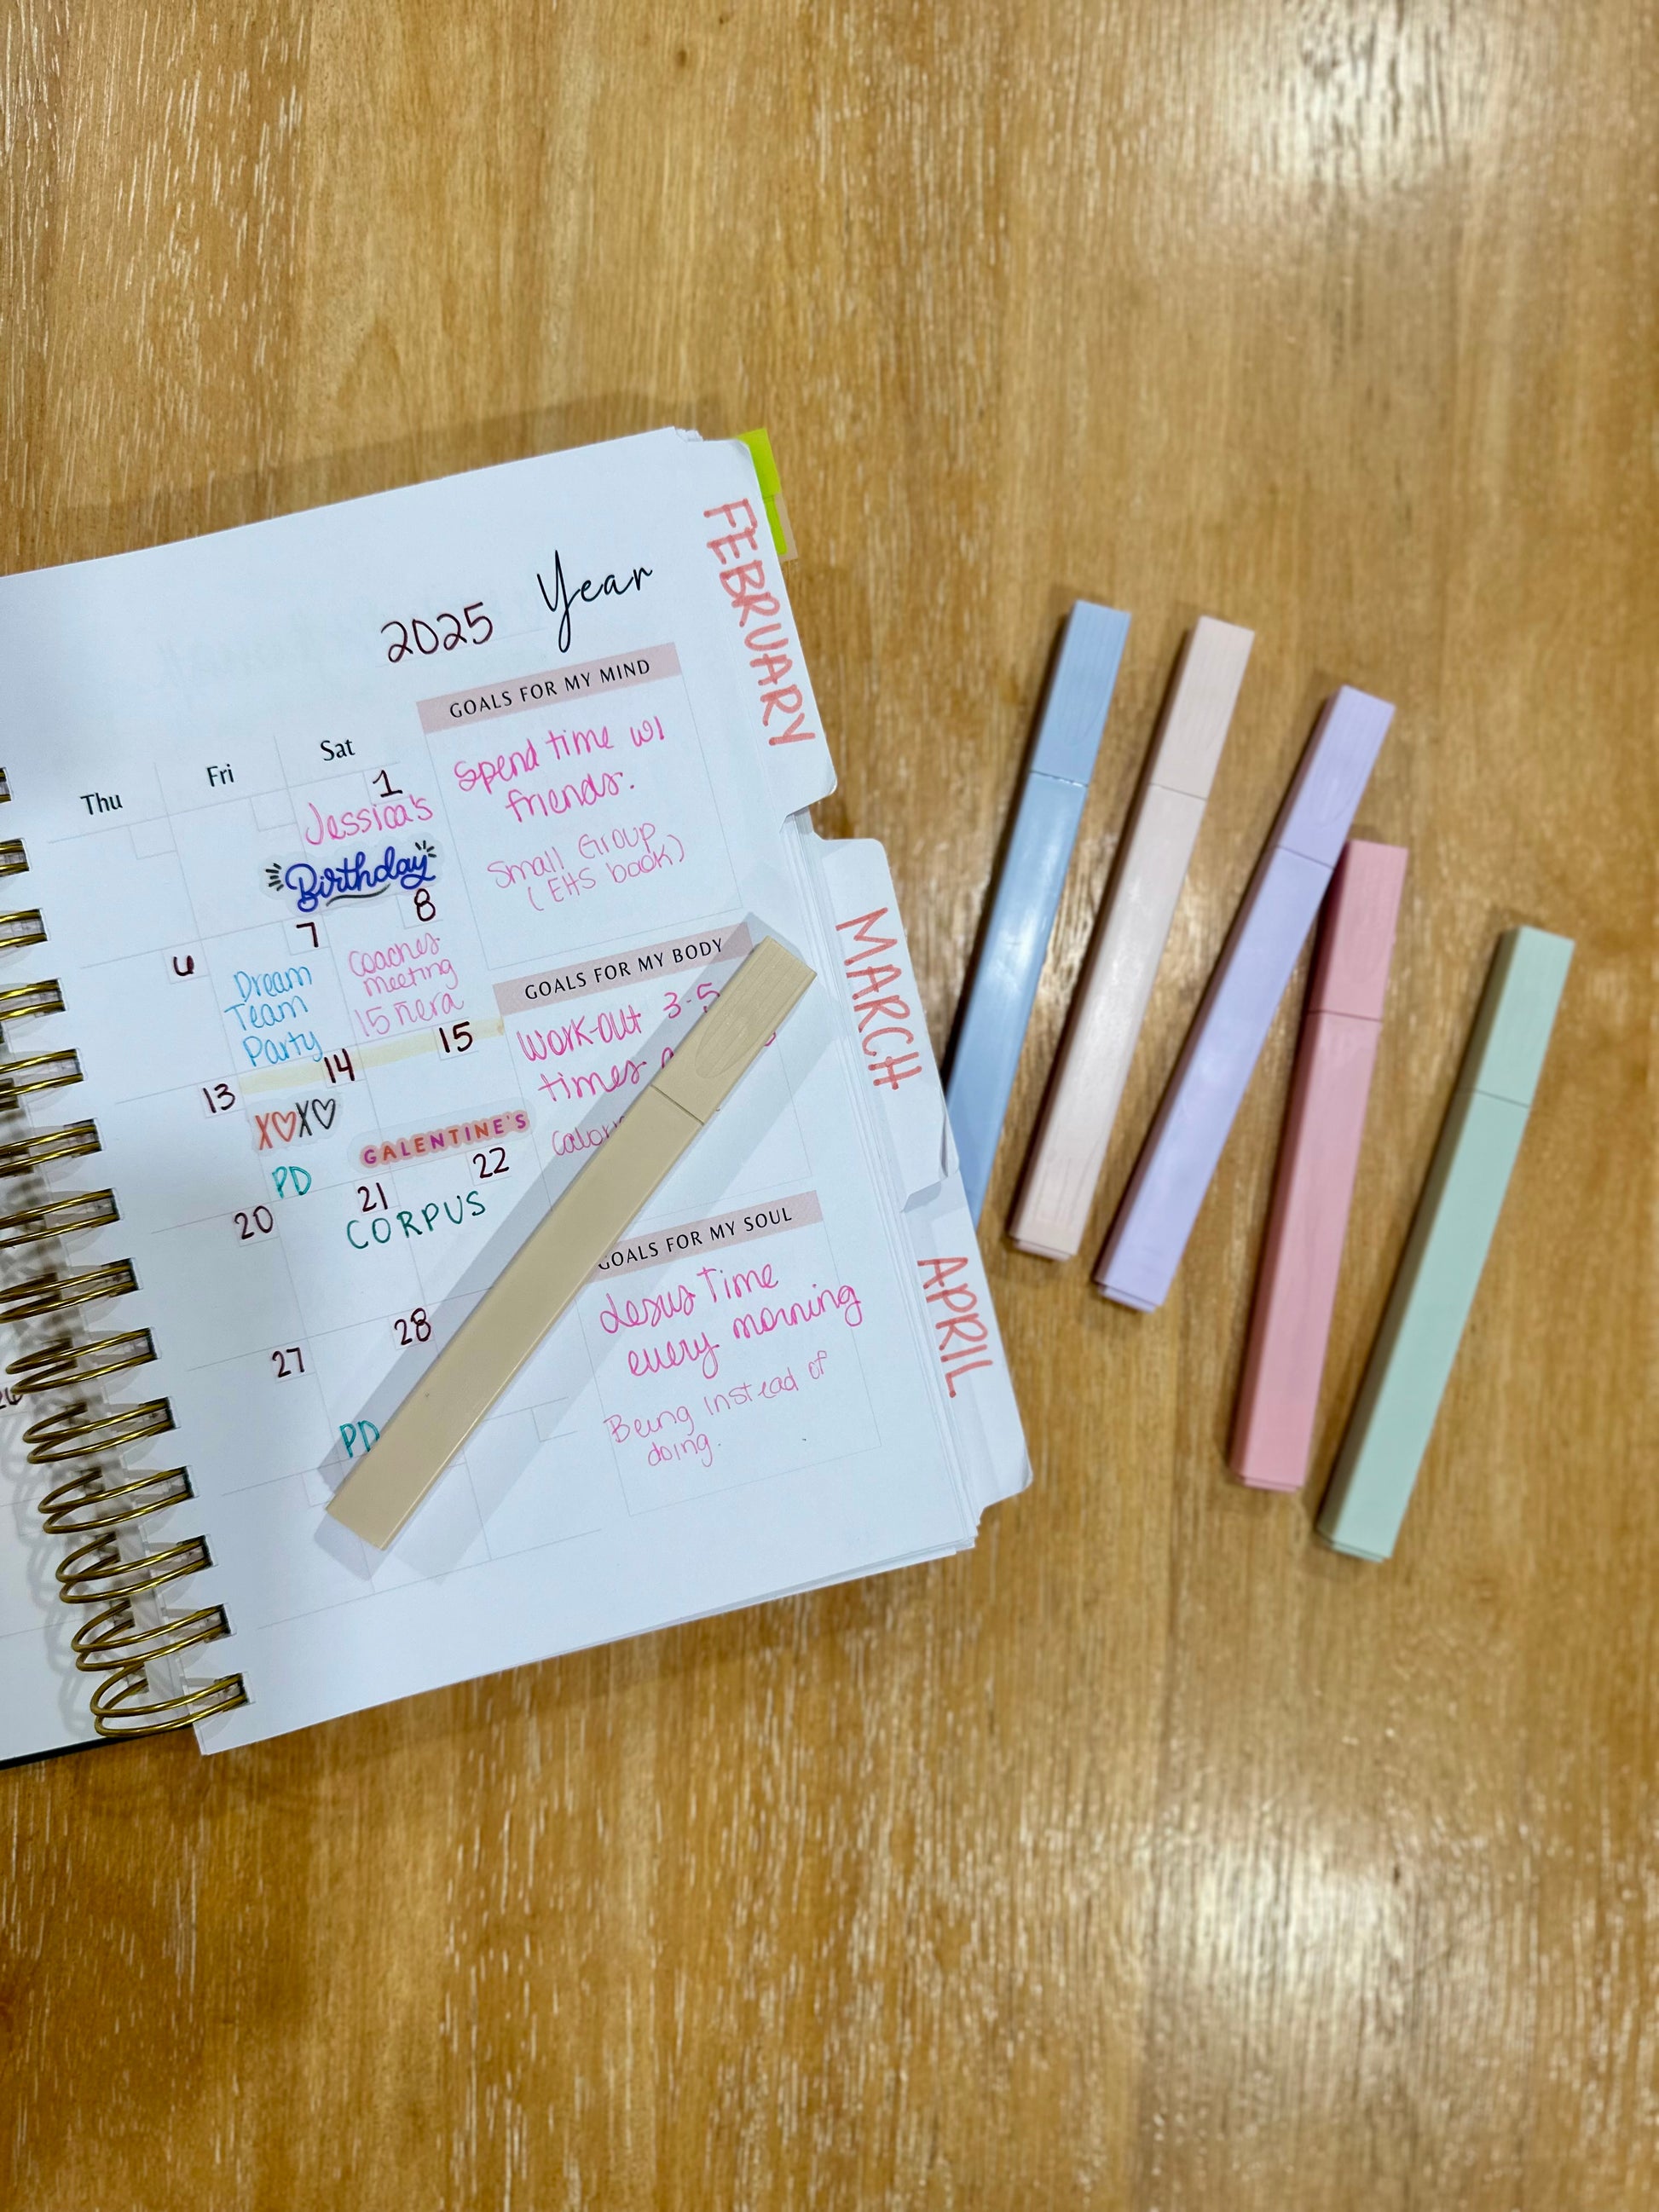 2025 Year
Thu Fri Sat
1
Jessica's
Birthday
6 7 8
Dream
Team
Party
Coaches
meeting
15ñera
13 14 15
XOXO
PD
GALENTINE'S
20 21 22
CORPUS
27 28
PD
GOALS FOR MY MIND
Spend time w/
friends.
Small Group
(EHS book)
GOALS FOR MY BODY
Work-out 3-5
times
GOALS FOR MY SOUL
Jesus Time
every morning
Being instead of
doing.
FEBRUARY
MARCH
APRIL